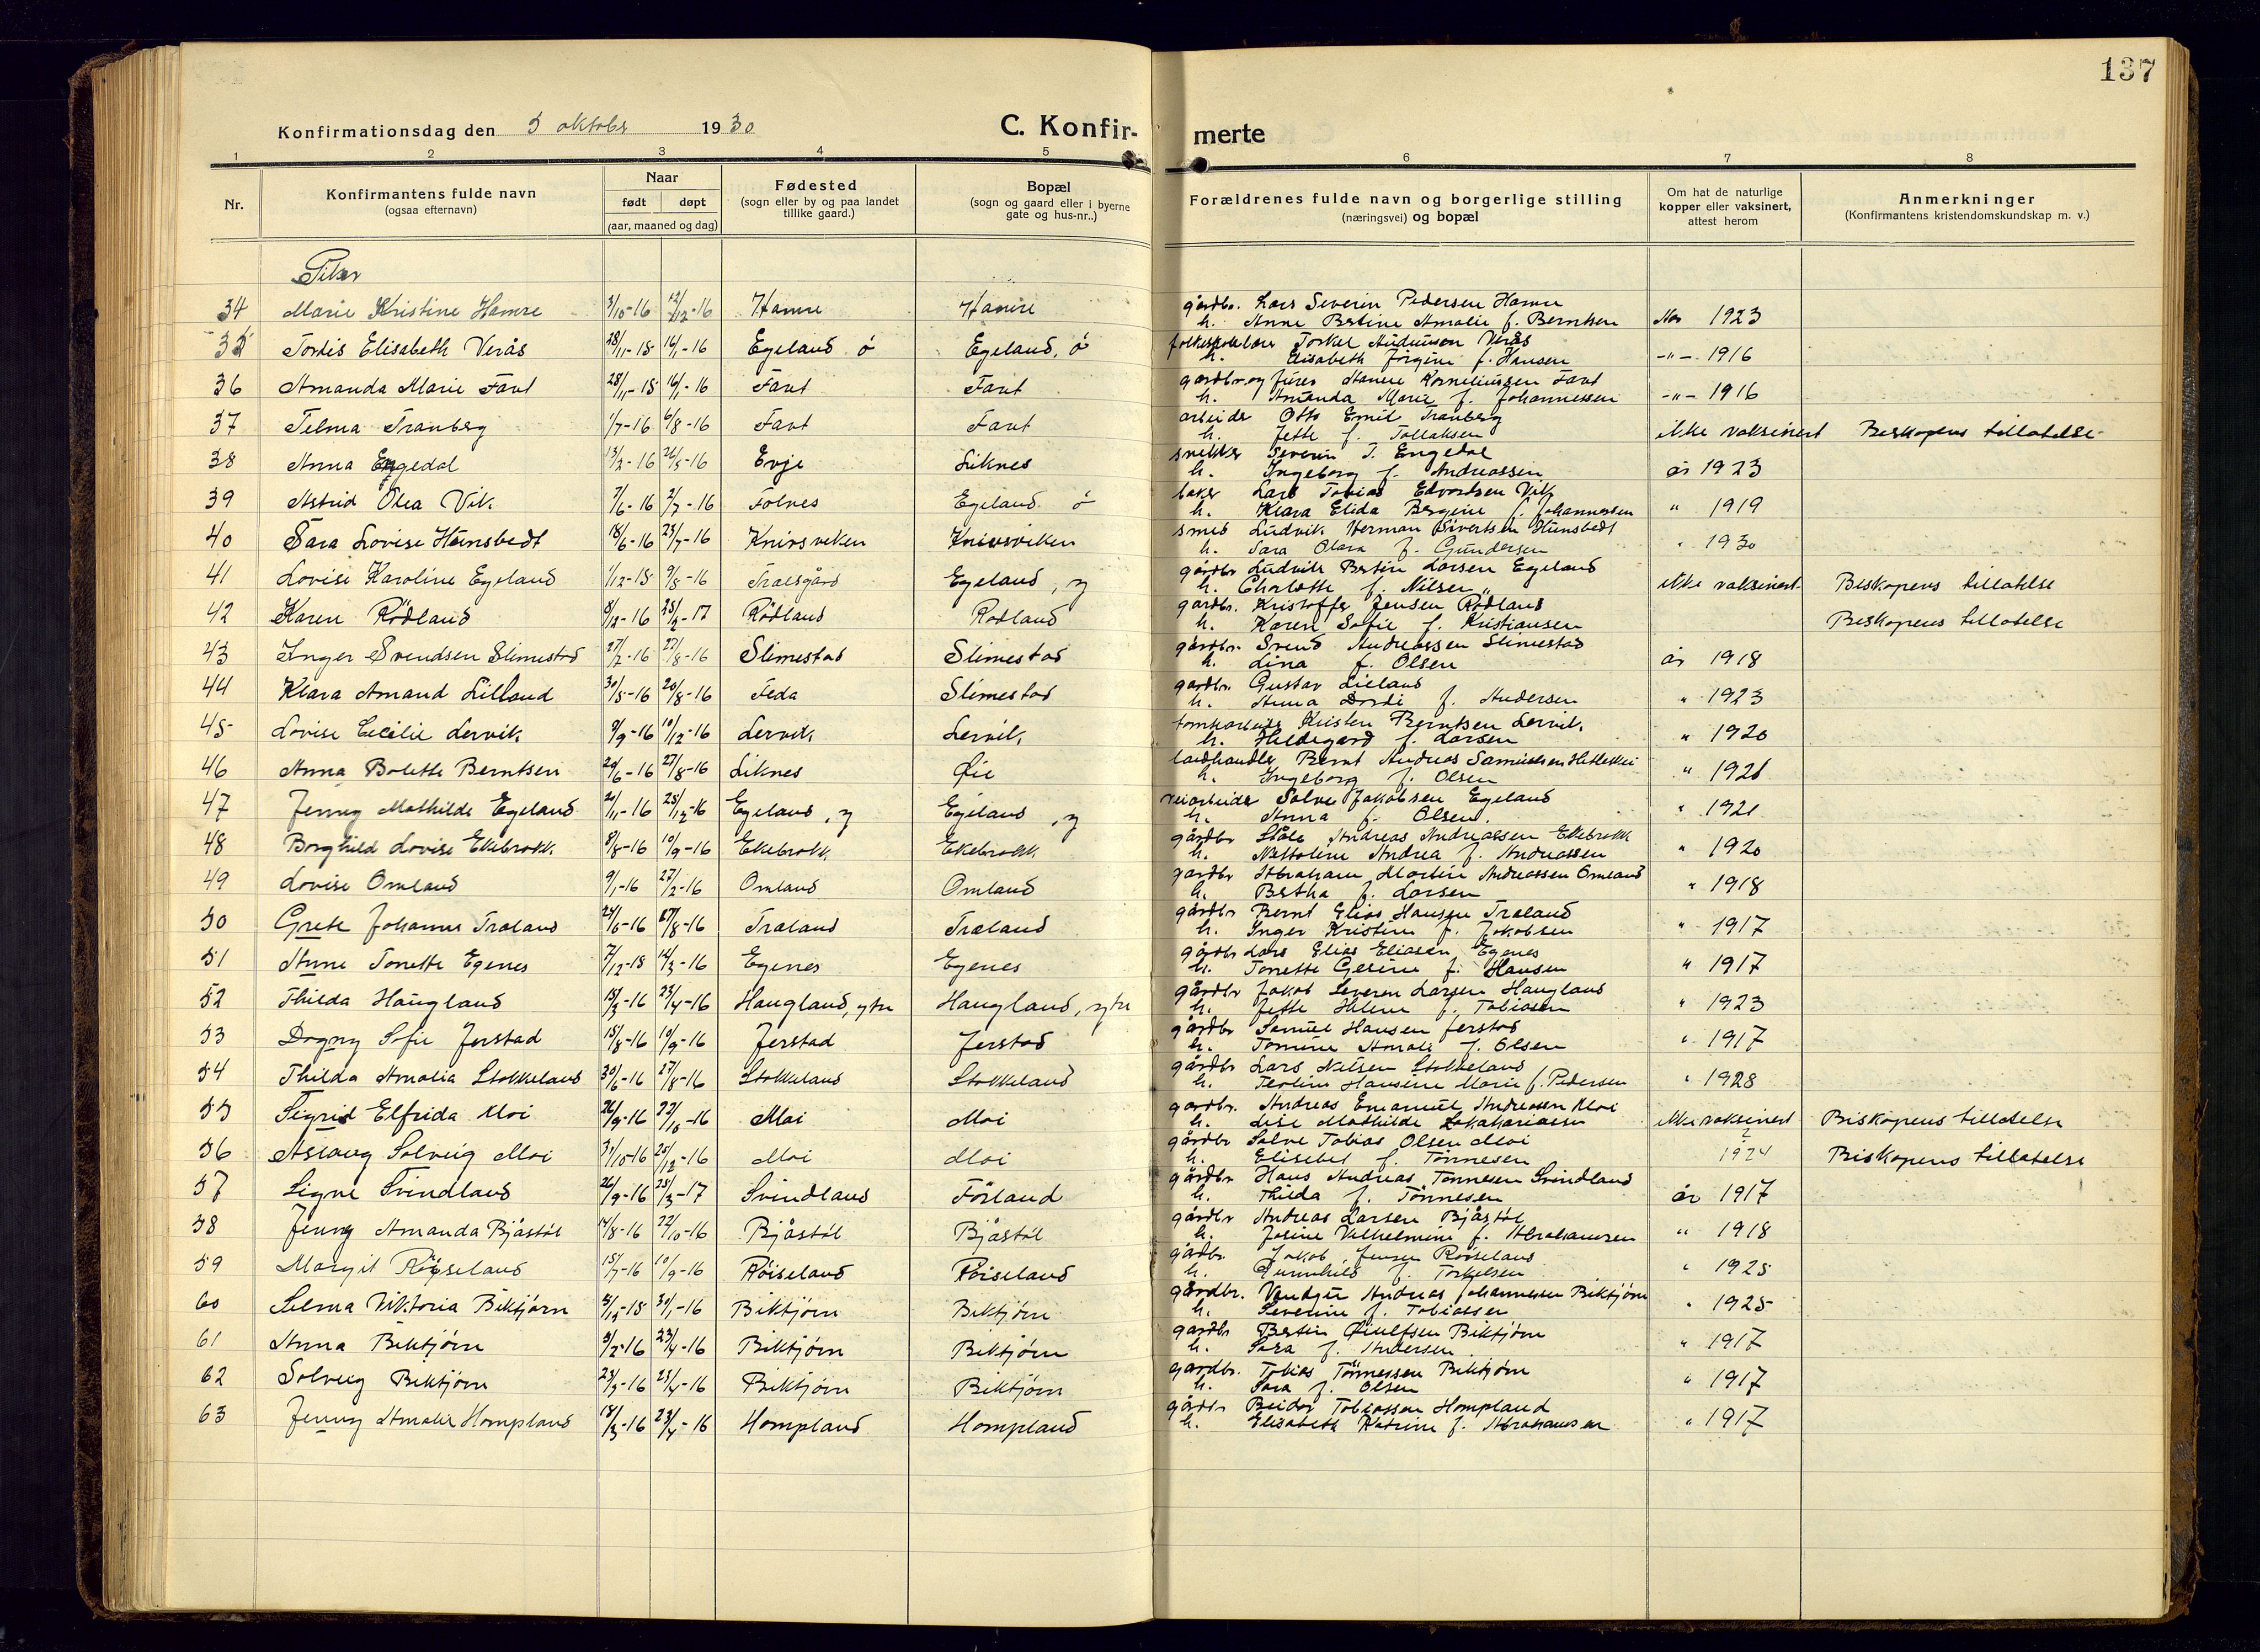 137
Konfirmationsdag den 5 oktobr 1930 C. Konfir- merte
1 2 3 4 5 6 7 8
Nr. Konfirmantens fulde navn (ogsaa efternavn) Naar født døpt (aar, maaned og dag) Fødested (sogn eller by og paa landet tillike gaard.) Bopæl (sogn og gaard eller i byerne gate og hus-nr..) Forældrenes fulde navn og borgerlige stilling (næringsvei) og bopæl Om hat de naturlige kopper eller vaksinert, attest herom Anmerkninger (Konfirmantens kristendomskundskap m. v.)
Piker
34 Marie Kristine Hamre 3/10-16 12/12-16 Hamre Hamre gårdbr. Lars Severin Pedersen Hamre
h. Anne Bertine Amalie f. Berntsen 1923
35 Tordis Elisabeth Verås 28/11-15 16/1-16 Egeland ö Egeland, ö Torkel Verås
h. Elisabeth Jörgine f. Hansen -"- 1916
36 Amanda Marie Favt 28/11-15 16/1-16 Favt Favt gårdbr. og Korneliussen Favt
h. Amanda Marie f. Johannessen -"- 1916
37 Telma Tranberg 1/7-16 6/8-16 Favt Favt arbeider Otto Emil Tranberg
h. Jette f. Tollaksen ikke vaksinert Biskopens tillatelse
38 Anna Engedal 13/2-16 26/5-16 Evje Liknes snekker Severin T. Engedal
h. Ingeborg f. Andreassen år 1923
39 Astrid Olea Vik 7/6-16 2/7-16 Egeland ö baker Lars Tobias Edvardsen Vik
h. Klara Elida Bergine f. Johannessen " 1919
40 Sara Lovise Hunsbedt 18/6-16 23/7-16 Knivsviken Knivsviken smed Ludvik Herman Sivertsen Hunsbedt
h. Sara Olara f. Gundersen " 1930
41 Lovise Karoline Egeland 1/12-15 9/8-16 Trælsgård Egeland, y gårdbr Ludvik Bertin Larsen Egeland
h. Charlotte f. Nilsen ikke vaksinert Biskopens tillatelse
42 Karen Rödland 8/12-16 25/2-17 Rödland Rödland gårdbr. Kristoffer Jensen Rödland
h. Karen Sofie f. Kristiansen Biskopens tillatelse
43 Inger Svendsen Slimestad 27/7-16 27/8-16 Slimestad Slimestad gårdbr. Svend Andreassen Slimestad
h. Lina f. Olsen år 1918
44 Klara Amand Lilland 30/5-16 20/8-16 Feda Slimestad gårdbr. Gustav Lieland
h. Anna Dordi f. Andersen " 1923
45 Lovise Cecilie Lervik 9/9-16 10/12-16 Lervik Lervik Kristen Berntsen Lervik
h. Hildegard f. Larsen " 1920
46 Anna Bolette Berntsen 29/6-16 27/8-16 Liknes Øie landhandler Bernt Andreas Samuelsen
h. Ingeborg f. Olsen " 1921
47 Jenny Mathilde Egeland 20/11-16 25/12-16 Egeland, y Egeland, y veiarbeider Salve Jakobsen Egeland
h. Anna f. Olsen " 1921
48 Borghild Lovise Ekebrokk 8/8-16 10/9-16 Ekebrokk Ekebrokk gårdbr Ståle Andreas Andreassen Ekebrokk
h. Nattoline Andrea f. Andreassen " 1920
49 Lovise Omland 9/1-16 27/2-16 Omland Omland gårdbr Abraham Martin Andreassen Omland
h. Bertha f. Larsen " 1918
50 Grete Johanne Træland 24/6-16 27/8-16 Træland Træland gårdbr Bernt Elias Hansen Træland
h. Inger Kristine f. Jakobsen " 1917
51 Anne Tonette Egenes 7/12-15 14/3-16 Egenes Egenes gårdbr Lars Elias Eliasen Egenes
h. Tonette Gesine f. Hansen " 1917
52 Thilda Haugland 15/3-16 23/4-16 Haugland, ytre Haugland, ytre gårdbr Jakob Severin Larsen Haugland
h. Jette Helene f. Tobiasen " 1923
53 Dagny Sofie Jerstad 15/8-16 10/9-16 Jerstad Jerstad gårdbr Samuel Hansen Jerstad
h. Tomine Amalie f. Olsen " 1917
54 Thilda Amalia Stokkeland 30/6-16 27/8-16 Stokkeland Stokkeland gårdbr Lars Nilsen Stokkeland
h. Teoline Hansine Marie f. Pedersen " 1928
55 Sigrid Elfrida Moi 26/9-16 22/10-16 Moi Moi gårdbr. Andreas Emanuel Andreassen Moi
h. Lise Mathilde Sakahariassen ikke vaksinert Biskopens tillatelse
56 Aslaug Solveig Moi 31/10-16 25/12-16 Moi Moi gårdbr Salve Tobias Olsen Moi
h. Elisebet f. Tönnesen 1924 Biskopens tillatelse
57 Signe Svindland 26/9-16 25/3-17 Svindland Förland gårdbr Hans Andreas Tonnesen Svindland
h. Thilda f. Tönnesen år 1917
58 Jenny Amanda Bjåstöl 14/8-16 22/10-16 Bjåstöl Bjåstöl gårdbr Andreas Larsen Bjåstöl
h. Josine Vilhelmine f. Abrahamsen " 1918
59 Margit Röiseland 15/7-16 10/9-16 Röiseland Röiseland gårdbr. Jakob Jensen Röiseland
h. Gunnhild f. Torkelsen " 1925
60 Selma Viktoria Biktjörn 4/12-15 30/1-16 Biktjörn Biktjörn gårdbr. Andreas Johannessen Biktjörn
h. Severine f. Tobiassen " 1925
61 Anna Biktjörn 3/2-16 23/4-16 Biktjörn Biktjörn gårdbr Bertin Öiulfsen Biktjörn
h. Sara f. Andersen " 1917
62 Solveig Biktjörn 23/2-16 23/4-16 Biktjörn Biktjörn gårdbr. Tobias Tönnessen Biktjörn
h. Sara f. Olsen " 1917
63 Jenny Amalie Hompland 18/3-16 23/4-16 Hompland Hompland gårdbr Reidar Tobiassen Hompland
h. Elisabeth Katrine f. Abrahamsen " 1917